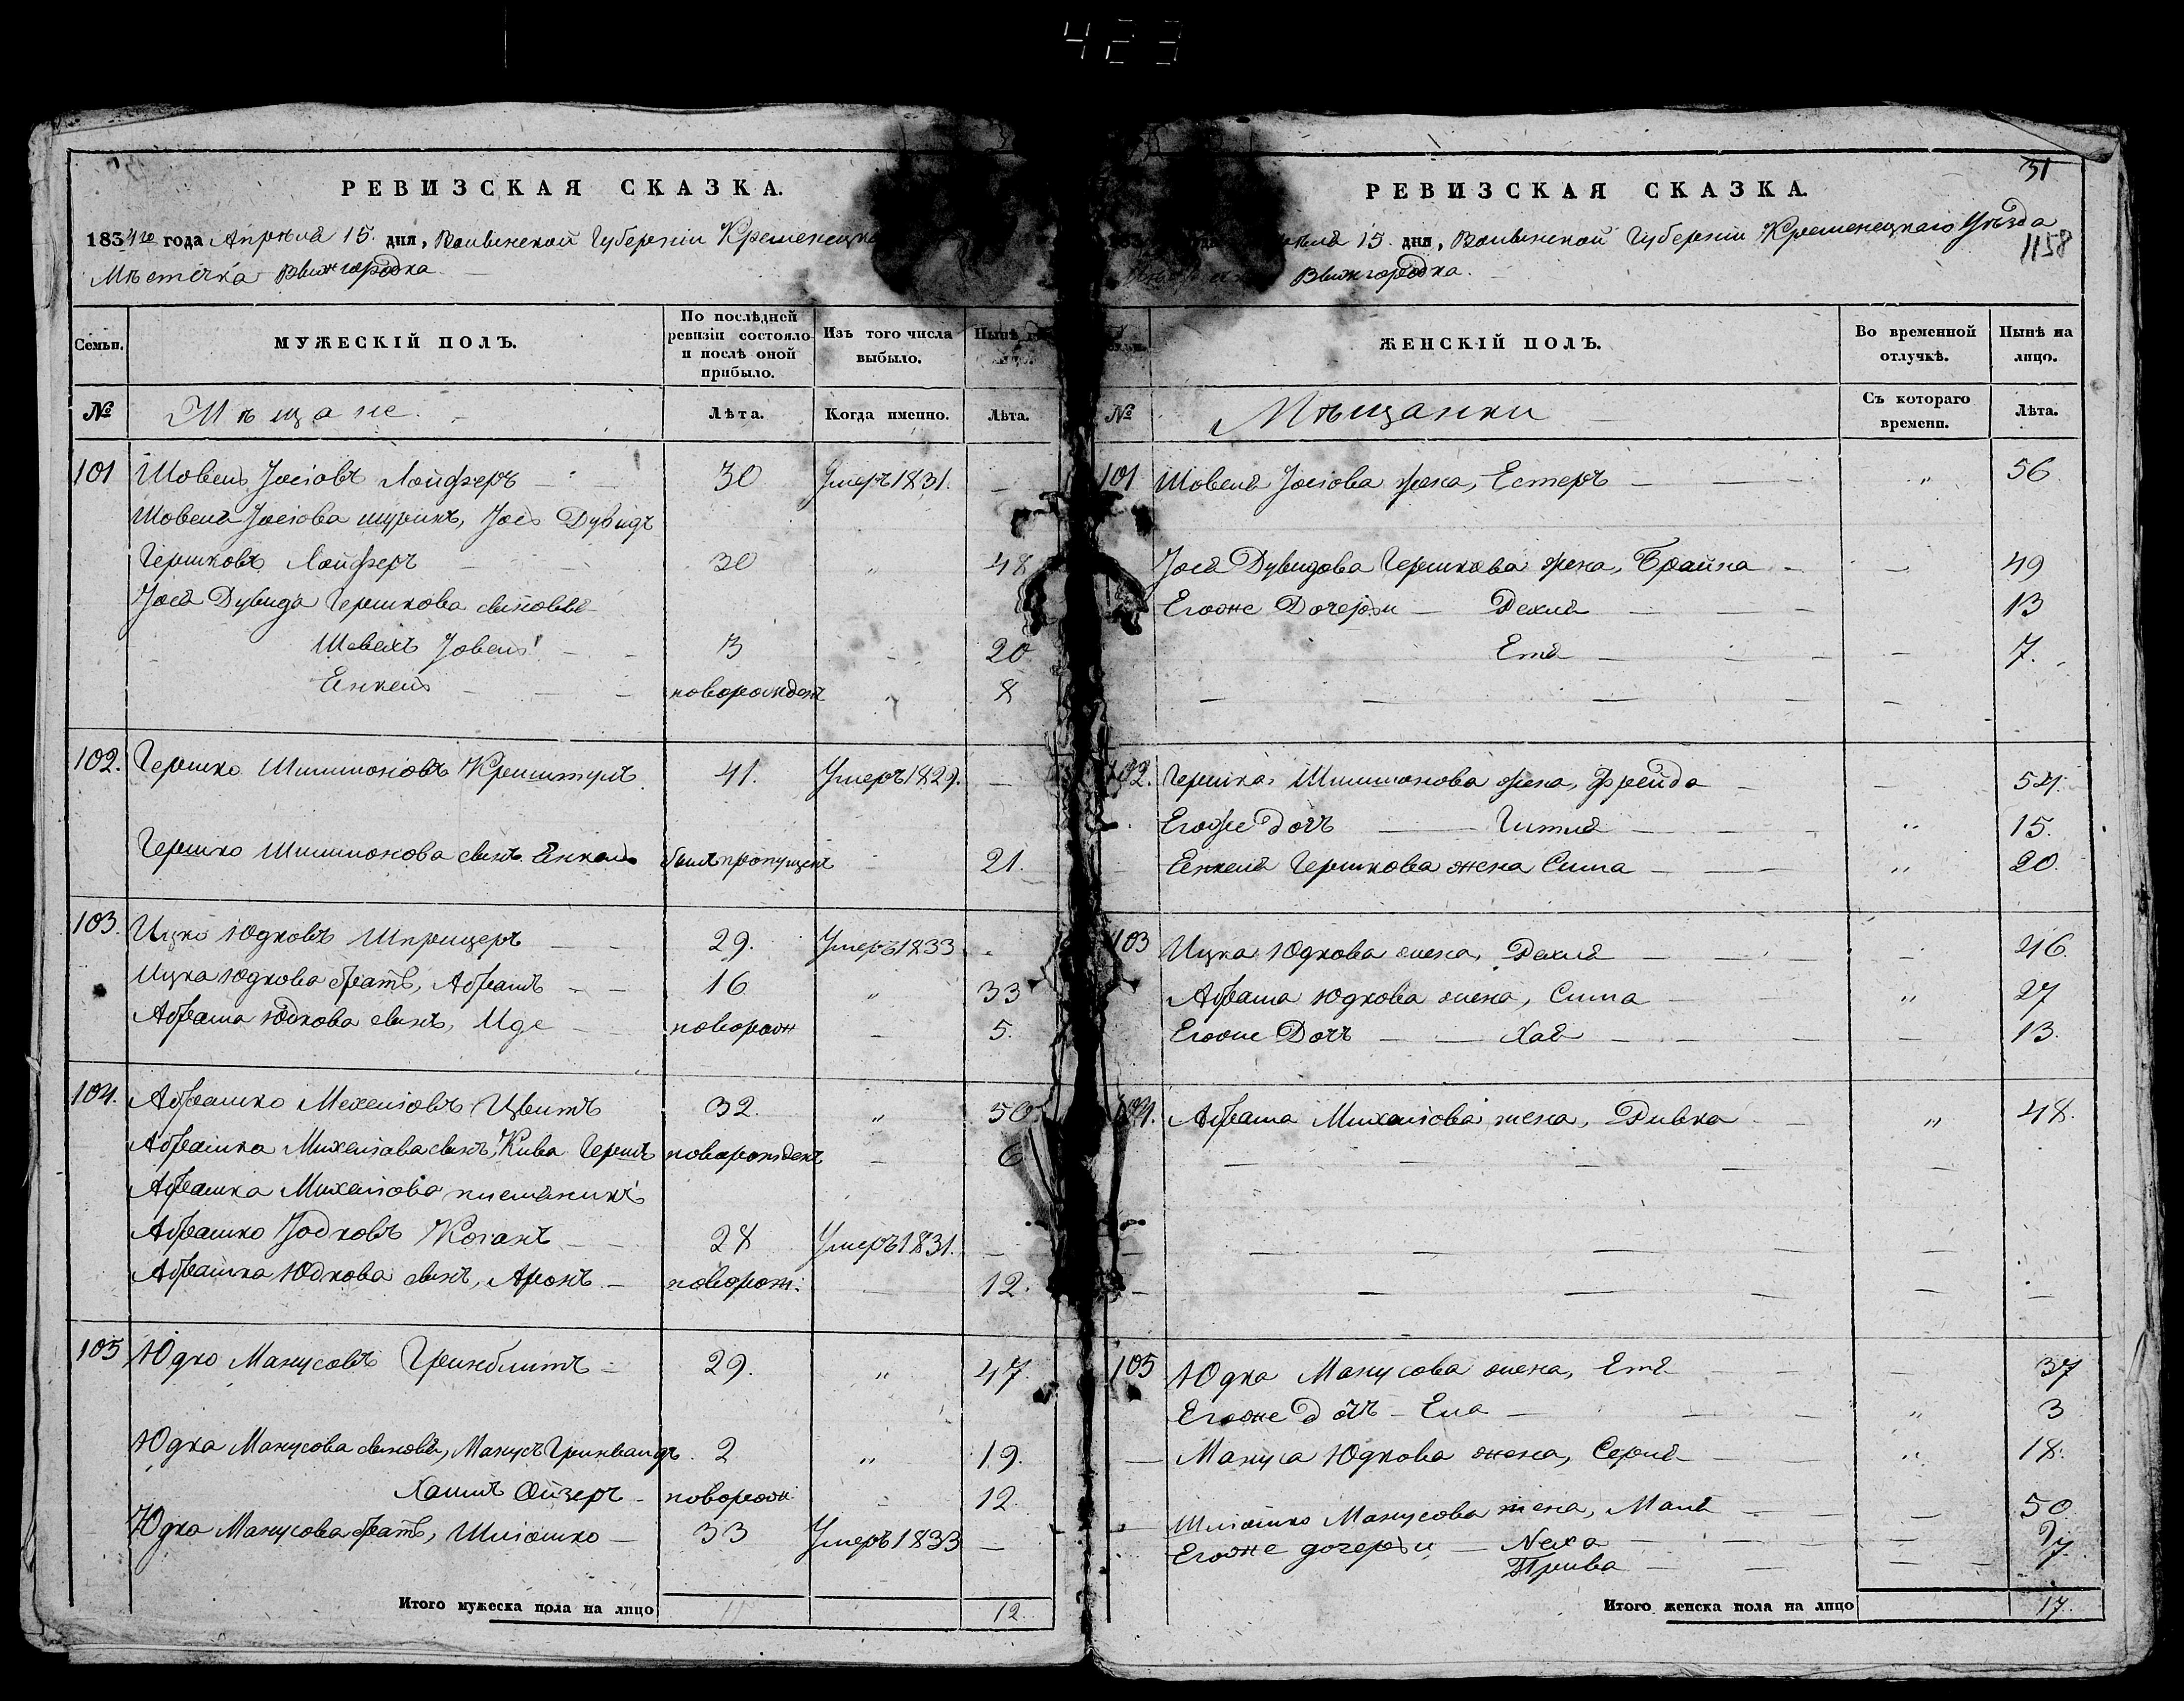 423
РЕВИЗСКАЯ СКАЗКА.
1834го года Апрѣля 15. дня, Волынской Губерніи Кременецка
Мѣстечка Вышгородка
Семьи.
МУЖЕСКІЙ ПОЛЪ.
По послѣдней ревизіи состояло и послѣ оной прибыло.
Изъ того числа выбыло.
Нынѣ
№
Мѣщане.
Лѣта.
Когда именно.
Лѣта.
101 Шовель Іосіовъ Лойферъ 30 Умеръ 1831. —
Шовеля Іосіова шуринъ, Іось Дувидъ
Гершковъ Лойферъ 30 " 48
Іося Дувида Гершкова сыновья
Шовехъ Іовель 3 20
Енкель новорожденъ 8
102. Гершко Шимшоновъ Криштулъ 41. Умеръ 1829. —
Гершко Шимшонова сынъ Енкель былъ пропущенъ 21.
103. Ицко Юдковъ Шприцеръ 29. Умеръ 1833
Ицка Юдкова братъ, Абрамъ 16 " 33
Абрама Юдкова сынъ, Иде новорож 5.
104. Абрамко Мехеліовъ Цвитъ 32. " 50
Абрамка Михеліова сынъ, Кива Гершъ новорожденъ 6
Абрамка Михеліова племѣникъ
Абрамко Іодковъ Коганъ 28 Умеръ 1831. —
Абрамка Юдкова сынъ, Аронъ новорож: 12.
105 Юдко Манусовъ Гринблитъ 29. " 47
Юдка Манусова сыновья, Манусъ Гринвальдъ 2 " 19.
Хаимъ Ойзеръ новорож 12.
Юдка Манусова братъ, Шліомко 33 Умеръ 1833 —
Итого мужеска пола на лицо 12.
31
1158
РЕВИЗСКАЯ СКАЗКА.
15. дня, Волынской Губерніи Кременецкаго Уѣзда
Вышгородка.
ЖЕНСКІЙ ПОЛЪ.
Во временной отлучкѣ.
Нынѣ на лицо.
№
Мѣщанки
Съ котораго времени.
Лѣта.
101 Шовеля Іосіова жена, Естеръ " 56
Іося Дувидова Гершкова жена, Брайна 49
Егоже Дочери — Рехля 13
Етя 7.
102. Гершка Шимшонова жена, Фрейда 54.
Егоже дочь Гитля " 15.
Енкеля Гершкова жена Сима " 20.
103 Ицка Юдкова жена, Рехля 46
Абрама Юдкова жена, Сима " 27
Егоже Дочь Хая 13.
104. Абрама Михеліова жена, Ривка " 48.
105 Юдка Манусова жена, Етя 37
Егоже дочь — Ела " 3
Мануса Юдкова жена, Серля " 18.
Шліомко Манусова жена, Маля 50
Егоже дочери — Неха
Прива 7.
Итого женска пола на лицо 17.